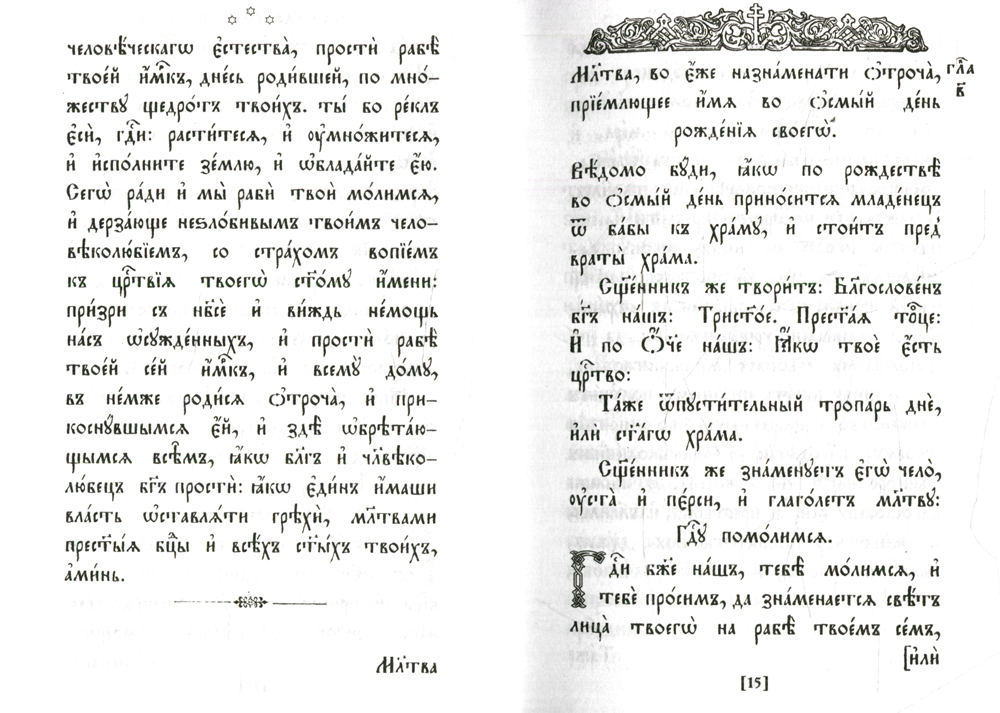 человѣ́ческагѡ є҆стества̀, простѝ рабѣ̀
твое́й и҆́м҃къ, дне́сь роди́вшей, по мно́-
жеству щедро́тъ твои́хъ. ты́ бо ре́клъ
є҆сѝ, гдⷭ҇и: расти́тесѧ, и҆ ᲂу҆мно́житесѧ,
и҆ и҆спо́лните зе́млю, и҆ ѡ҆блада́йте є҆́ю.
Сегѡ̀ ра́ди и҆ мы̀ рабѝ твоѝ мо́лимсѧ,
и҆ дерза́юще неѕло́бивымъ твои́мъ чело-
вѣколю́бїемъ, со стра́хомъ вопїе́мъ
къ црⷭ҇твїѧ твоегѡ̀ ст҃о́му и҆́мени:
при́зри съ нб҃сѐ и҆ ви́ждь не́мощь
на́съ ѡ҆сужде́нныхъ, и҆ простѝ рабѣ̀
твое́й се́й и҆́м҃къ, и҆ всему̀ до́му,
въ не́мже роди́сѧ ѻ҆троча̀, и҆ при-
косну́вшымсѧ є҆́й, и҆ здѣ̀ ѡ҆брѣта́ю-
щымсѧ всѣ̑мъ, ꙗ҆́кѡ бл҃гъ и҆ чл҃вѣко-
лю́бецъ бг҃ъ простѝ: ꙗ҆́кѡ є҆ди́нъ и҆́маши
вла́сть ѡ҆ставлѧ́ти грѣхѝ, мл҃твами
прест҃ы́ѧ бцⷣы и҆ всѣ́хъ ст҃ы́хъ твои́хъ,
а҆ми́нь.
Мл҃тва
Мл҃тва, во є҆́же назна́менати ѻ҆троча̀,
прїе́млющее и҆́мѧ во ѻ҆смы́й де́нь
рожде́нїѧ своегѡ̀.
гла̑
в҃
Вѣ́домо бу́ди, ꙗ҆́кѡ по рождествѣ̀
во ѻ҆смы́й де́нь прино́ситсѧ младе́нецъ
ѿ ба́бы къ хра́му, и҆ стои́тъ пред̾
враты̀ хра́ма.
Сщ҃е́нникъ же твори́тъ: Бл҃гослове́нъ
бг҃ъ на́шъ: Трист҃о́е. Прест҃а́ѧ тро́ⷪ҇це:
И҆ по Ѻ҆́ч҃е на́шъ: Ꙗ҆́кѡ твоѐ є҆́сть
црⷭ҇тво:
Та́же ѿпусти́тельный тропа́рь днѐ,
и҆лѝ ст҃а́гѡ хра́ма.
Сщ҃е́нникъ же зна́менуетъ є҆гѡ̀ чело̀,
ᲂу҆ста̀ и҆ пе́рси, и҆ глаго́летъ мл҃тву:
Гдⷭ҇у помо́лимсѧ.
Гдⷭ҇и бж҃е на́шъ, тебѣ̀ мо́лимсѧ, и҆
тебѐ про́симъ, да зна́менаетсѧ свѣ́тъ
лица̀ твоегѡ̀ на рабѣ̀ твое́мъ се́мъ,
[и҆лѝ
[15]